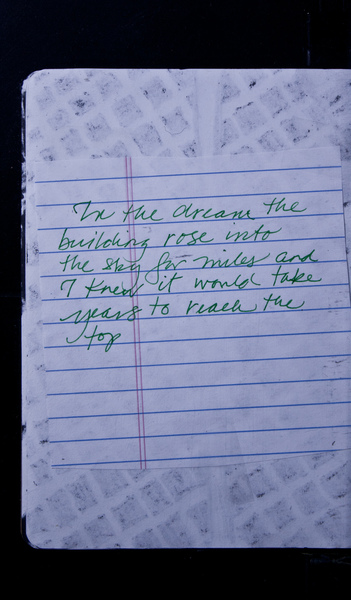 In the dream the
building rose into
the sky for miles and
I knew it would take
years to reach the
top